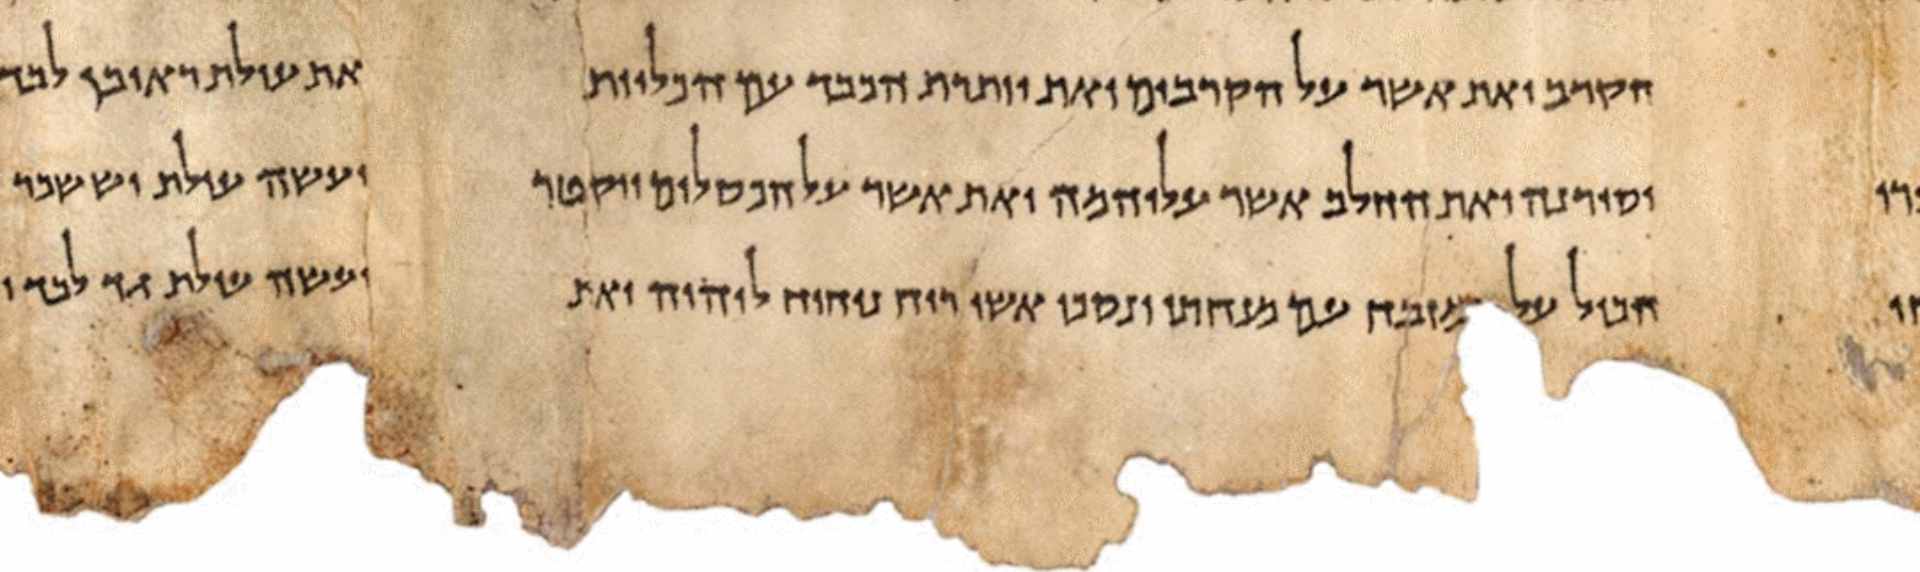 הקרב ואת אשר על הקרבים ואת יותרת הכבד עם הכליות
יסירנה ואת החלב אשר עליהמה ואת אשר על הכסלים ויקטר
הכול על מזבח עם מנחתו ונסכו אשי ריח ניחוח ליהוה ואת
את עולת ראובן לבד
יעשה עולת יששכר
יעשה עולת גד לבד ו